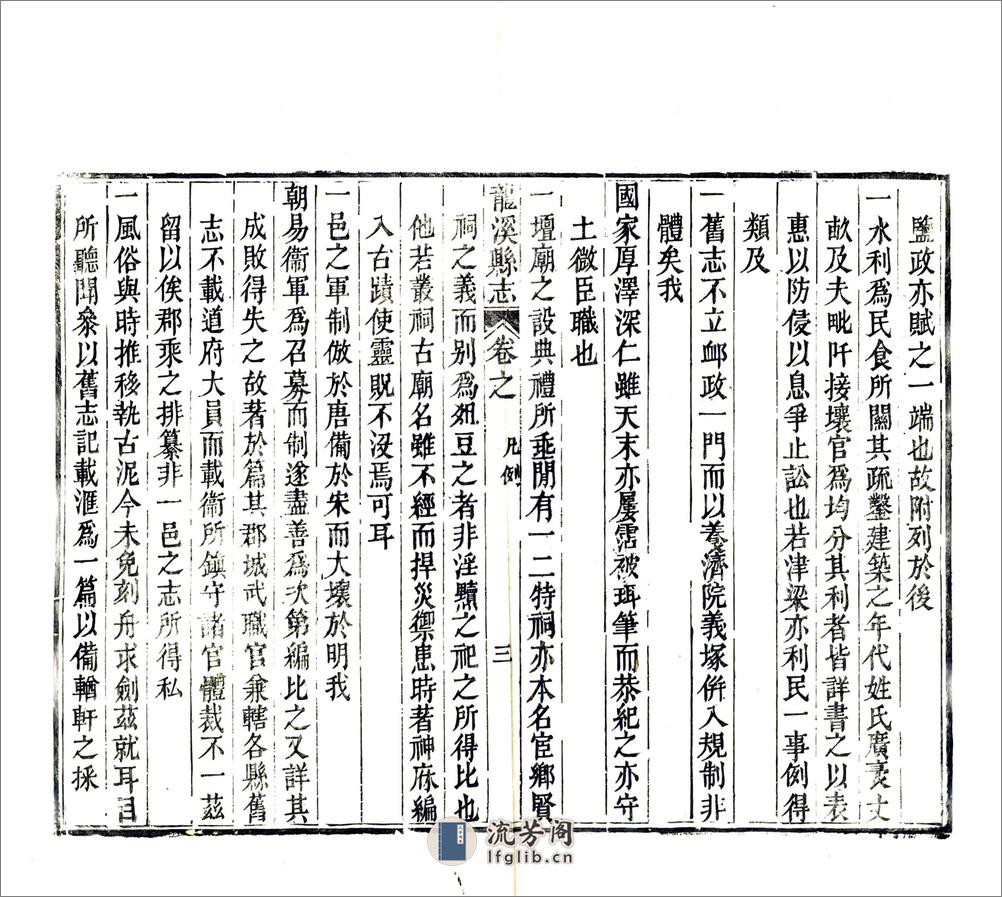 鹽政亦賦之一端也故附列於後
一水利爲民食所關其疏鑿建築之年代姓氏廣袤丈
畝及夫毗阡接壤官爲均分其利者皆詳書之以表
惠以防侵以息爭止訟也若津梁亦利民一事例得
類及
一舊志不立䘏政一門而以養濟院義塚併入規制非
體矣我
國家厚澤深仁雖天末亦屢霑被珥筆而恭紀之亦守
土微臣職也
一壇廟之設典禮所垂閒有一二特祠亦本名宦鄉賢
龍溪縣志 卷之 凡例 三
祠之義而别爲俎豆之者非淫黷之祀之所得比也
他若叢祠古廟名雖不經而捍災禦患時著神庥編
入古蹟使靈貺不沒焉可耳
一邑之軍制倣於唐備於宋而大壞於明我
朝易衞軍爲召募而制遂盡善爲次第編比之又詳其
成敗得失之故著於篇其郡城武職官兼轄各縣舊
志不載道府大員而載衞所鎮守諸官體裁不一茲
留以俟郡乘之排纂非一邑之志所得私
一風俗與時推移執古泥今未免刻舟求劍茲就耳目
所聽聞衆以舊志記載滙爲一篇以備輶軒之採
流芳阁
lfglib.cn